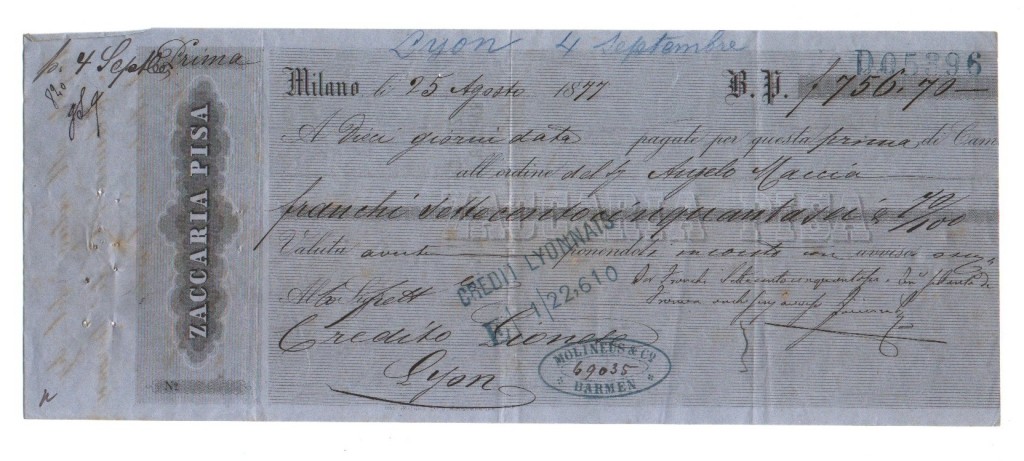 Lyon 4 Septembre
p. 4 Sept Prima
D05896
Milano li 25 Agosto 1877 B. P. f 756.70
A Dieci giorni data pagate per questa prima di Cam
all'ordine del Sig Angelo Maccia
franchi Settecentocinquantasei & 70/100
Valuta avuta ponendola in conto con avviso
CREDIT LYONNAIS
1/22,610
Credito Lionese
Lyon
MOLINEUS & Co.
69035
BARMEN
ZACCARIA PISA
No.
ZACCARIA PISA